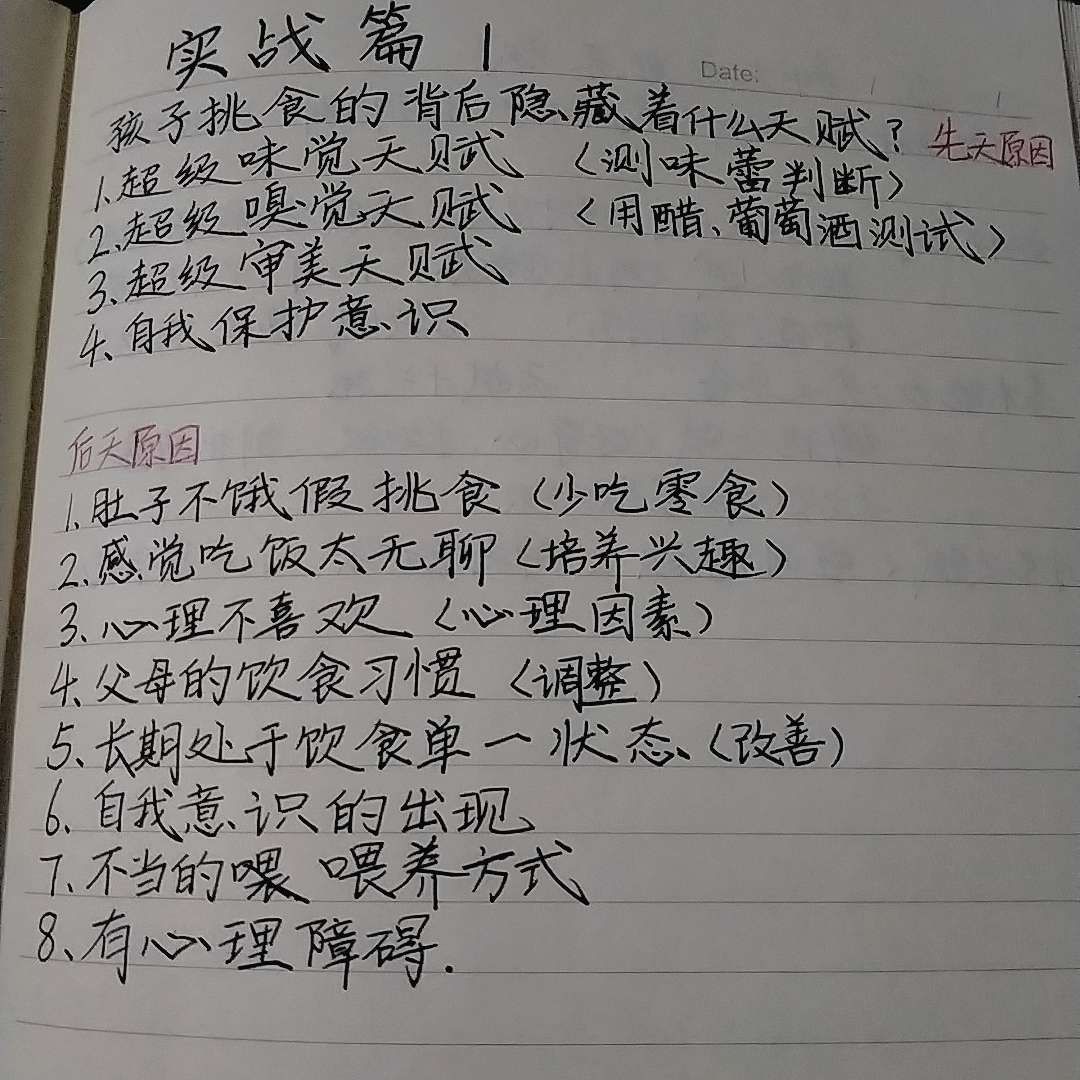 实战篇 1
Date:
孩子挑食的背后隐藏着什么天赋? 先天原因
1、超级味觉天赋 (测味蕾判断)
2、超级嗅觉天赋 (用醋、葡萄酒测试)
3、超级审美天赋
4、自我保护意识
后天原因
1、肚子不饿假挑食 (少吃零食)
2、感觉吃饭太无聊 (培养兴趣)
3、心理不喜欢 (心理因素)
4、父母的饮食习惯 (调整)
5、长期处于饮食单一状态 (改善)
6、自我意识的出现
7、不当的喂养方式
8、有心理障碍.